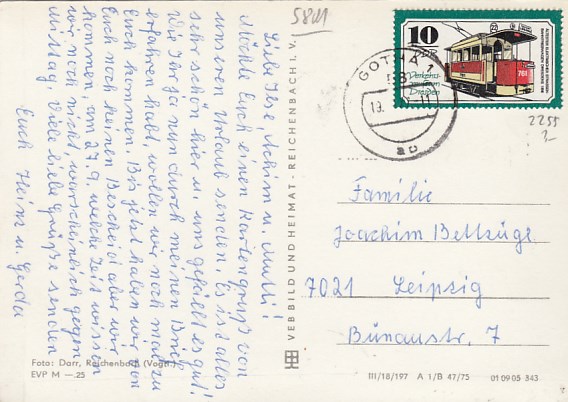 5801
Liebe Ilse, Achim u. Mutti!
Möchte Euch einen Kartengruß von
unserem Urlaub senden. Es ist alles
sehr schön hier u. uns gefällt es gut.
Wie Ihr ja nun durch meinen Brief
erfahren habt, wollen wir noch mal zu
Euch kommen. Bis jetzt haben wir von
Euch noch keinen Bescheid aber wir
kommen am 27.9. welche Zeit wissen
wir noch nicht warscheinlich gegen
Mittag. Viele liebe Grüße senden
Euch Heinz u. Gerda
Foto: Darr, Reichenbach (Vogtl.)
EVP M —.25
VEB BILD UND HEIMAT · REICHENBACH I. V.
GOTHA 1
10
DDR
Verkehrs-
museum
Dresden
761
2255
3,-
Familie
Joachim Bellzüge
7021 Leipzig
Bünaustr. 7
III/18/197 A 1/B 47/75 01 09 05 343